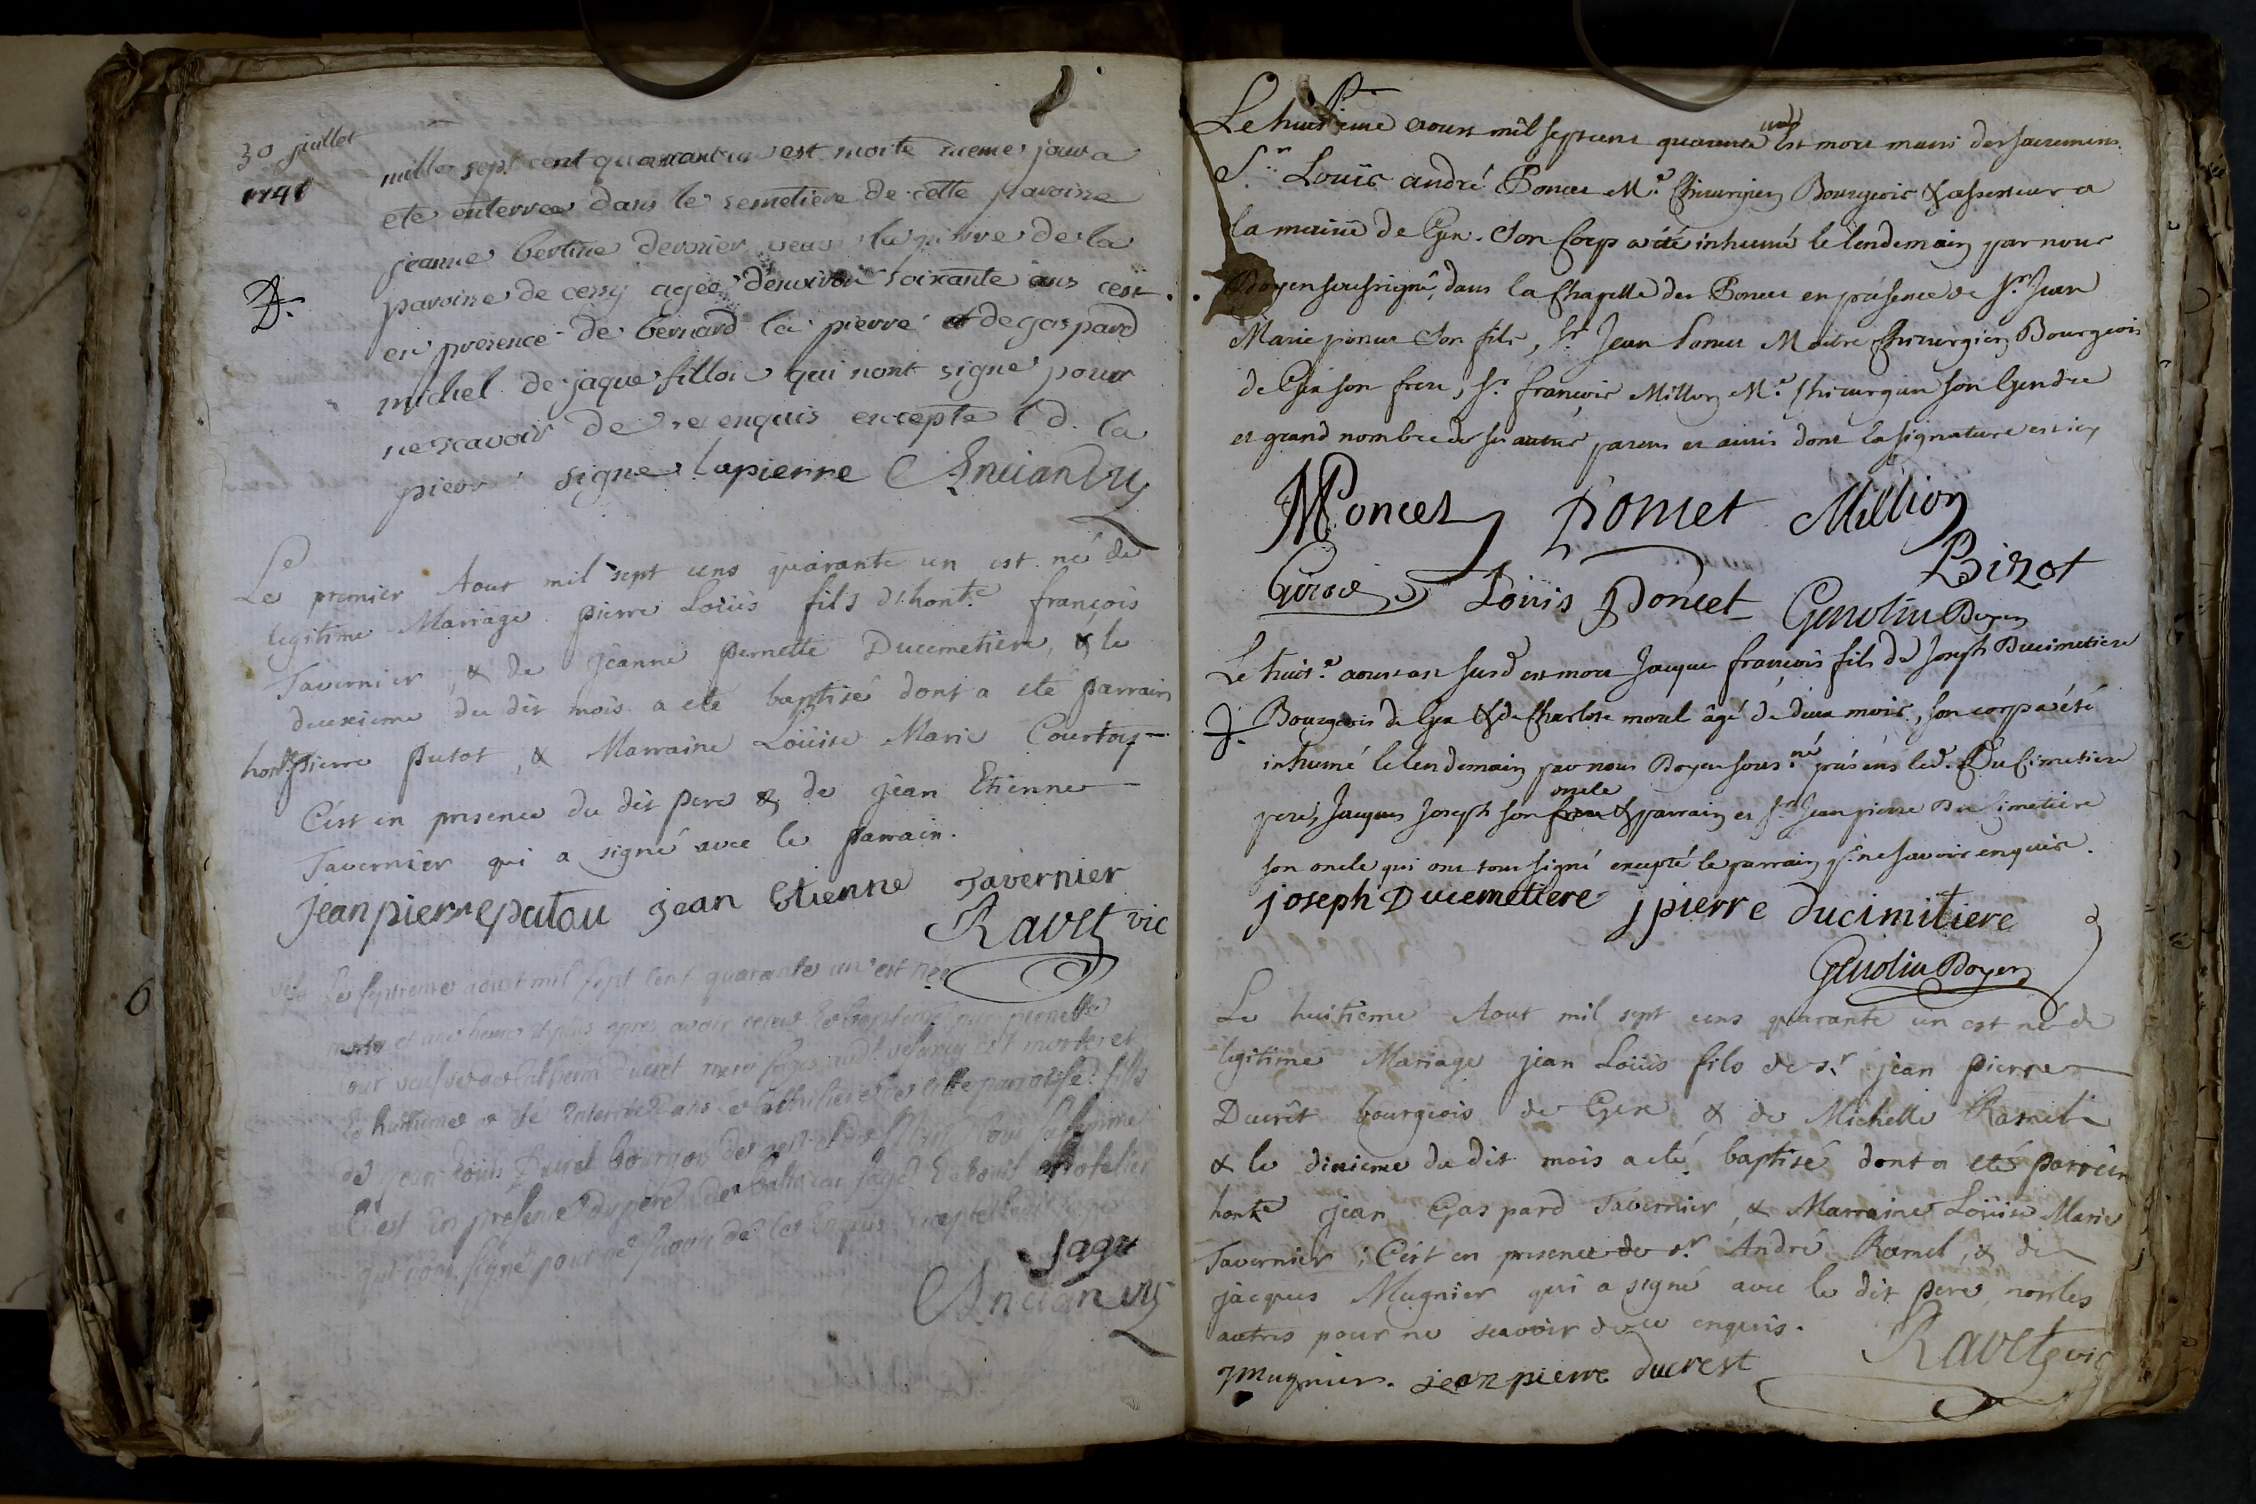 30 juillet
1741
mille sept cent quarant un est morte meme jour a
ete enterree dans le semetiere de cette paroisse
jeanne berline devosier veuve la pierre de la
paroisse de cessy agée d'environ soixante ans cest
en presence de bernard la pierre et de gaspard
michel de jaque fillou qui nont signé pour
ne scavoir de ce enquis excepte l d. la
pierre signe lapierre Anciandry
Le premier Aout mil sept cens quarante un est né de
legitime Mariage pierre Loüis fils d'hont.e françois
Tavernier, & de jeanne pernette Ducemetiere, & le
deuxieme du dit mois a eté baptisé dont a ete parrain
hont. pierre putot, & Marraine Loüise Marie Courtois
C'est en presence du dit pere & de jean Etienne
Tavernier qui a signé avec le parrain.
jean pierre putau jean Etienne Tavernier
Ravet vic
Le septieme aoust mil sept cent quarante un est née
et une heure et plus apres avoir receu le bapteme par pernette
est morte et
le huitieme a été enterrée dans le cemitiere de cette parroisse fille
de jean Louis Ducret bourgeois de gex et de sa femme
C'est en presence du pere de baltazar sage
qui n'ont signé pour ne savoir de ce enquis excepté ledit sage
sage
Anciandry
Le huitieme aoust mil sept cent quarante un est mort muni des sacremens
S.r Loüis andré Poncet M.e Chirurgien Bourgeois & assesseur a
la mairie de Gex. Son Corp a été inhumé le lendemain par nous
Doyen soussigné, dans la Chapelle des Poncet en présence de S.r Jean
Marie poncet Son fils, S.r Jean Poncet Maitre Chirurgien Bourgeois
de Gex son frere, S.r françois Million M.e Chirurgien son Gendre
et grand nombre de ses autres parens et amis dont la signature est icy
M Poncet Poncet Million
Girod Loüis Poncet Bizot
Genolin Doyen
Le huit.e aoust an susd. est mort Jacque françois fils de Joseph Ducimetiere
Bourgeois de Gex & de Charlote morel âgé de deux mois, son corp a été
inhumé le lendemain par nous Doyen sous.né présens led. Ducimetiere
pere, Jacques Joseph son frere oncle & parrain et S.r Jean pierre Ducimetiere
son oncle qui ont tous signé excepté le parrain p.r ne savoir enquis.
joseph Ducemetiere j pierre ducimitiere
Genolin Doyen
Le huitieme Aout mil sept cens quarante un est né de
legitime Mariage jean Loüis fils de s.r jean pierre
Ducrêt bourgeois de Gex & de Michelle Ramel
& le dixieme du dit mois a eté baptisé dont a eté parrein
hont.e jean Gaspard Tavernier, & Marraine Loüise Marie
Tavernier; C'est en presence de s.r André Ramel, & de
jacques Mugnier qui a signé avec le dit pere, non les
autres pour ne scavoir de ce enquis.
j mugnier. jean pierre ducrest Ravet vic